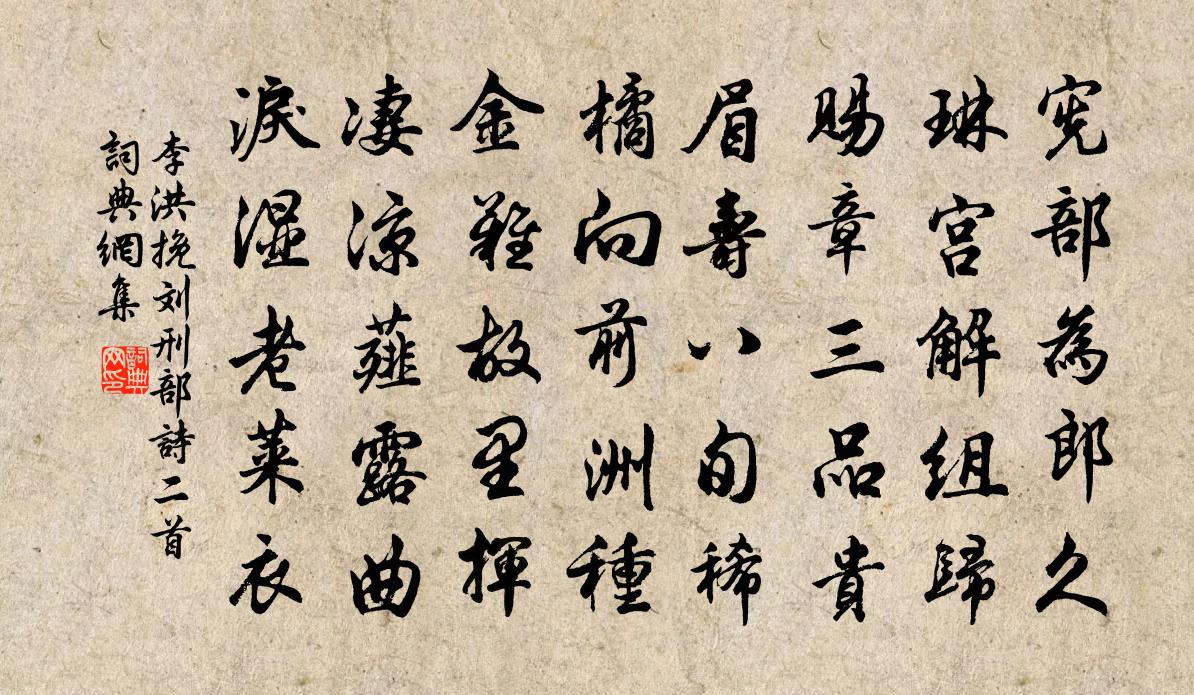 宪部為郎久
琳宫解組歸
賜章三品貴
眉壽八旬稀
橘向前洲種
金難故里揮
凄凉薤露曲
淚湿老莱衣
李洪挽刘刑部詩二首
詞典網集
詞典网印